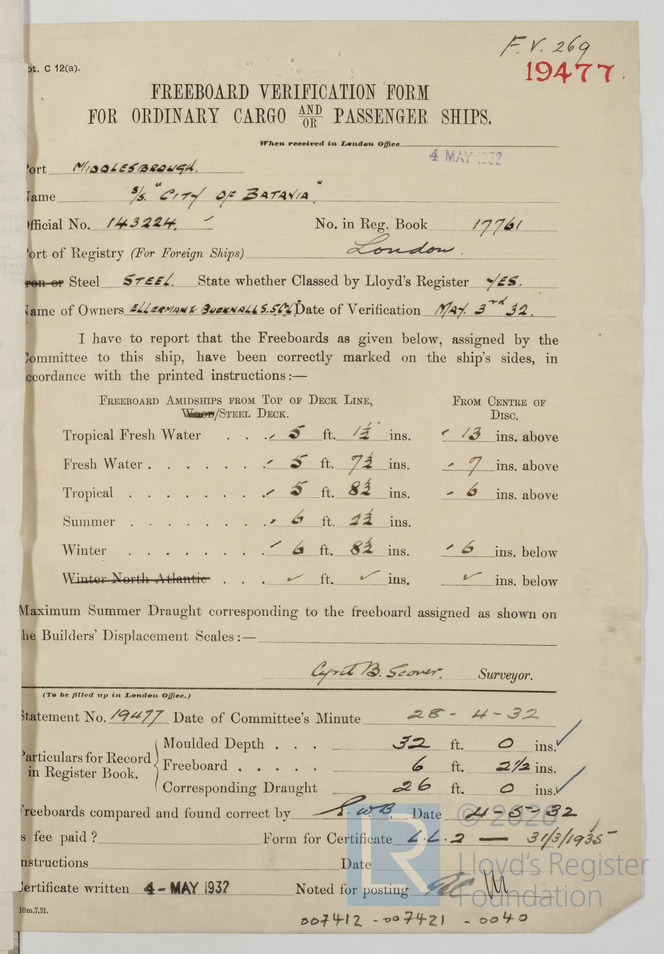 F.V. 269
pt. C 12(a).
19477.
FREEBOARD VERIFICATION FORM
FOR ORDINARY CARGO AND/OR PASSENGER SHIPS.
When received in London Office
4 MAY 1932
Port MIDDLESBROUGH.
Name S/S. "CITY OF BATAVIA"
Official No. 143224. No. in Reg. Book 17761
Port of Registry (For Foreign Ships) London.
Iron or Steel STEEL. State whether Classed by Lloyd's Register YES.
Name of Owners ELLERMAN & BUCKNALL S.S. Co Ld Date of Verification MAY 3rd 32.
I have to report that the Freeboards as given below, assigned by the
Committee to this ship, have been correctly marked on the ship's sides, in
accordance with the printed instructions:—
FREEBOARD AMIDSHIPS FROM TOP OF DECK LINE, FROM CENTRE OF
WOOD/STEEL DECK. DISC.
Tropical Fresh Water . . . 5 ft. 1½ ins. 13 ins. above
Fresh Water . . . . . . 5 ft. 7½ ins. 7 ins. above
Tropical . . . . . . . 5 ft. 8½ ins. 6 ins. above
Summer . . . . . . . 6 ft. 2½ ins.
Winter . . . . . . . 6 ft. 8½ ins. 6 ins. below
Winter North Atlantic . . . ✓ ft. ✓ ins. ✓ ins. below
Maximum Summer Draught corresponding to the freeboard assigned as shown on
the Builders' Displacement Scales:—
Cyril B. Scorer. Surveyor.
(To be filled up in London Office.)
Statement No. 19477 Date of Committee's Minute 28-4-32
Moulded Depth . . . 32 ft. 0 ins. ✓
Particulars for Record in Register Book. Freeboard . . . . . 6 ft. 2½ ins.
Corresponding Draught 26 ft. 0 ins. ✓
Freeboards compared and found correct by E.W.B. Date 4-5-32
Is fee paid? Form for Certificate L.L.2 — 31/3/1935
Instructions Date
Certificate written 4-MAY 1932 Noted for posting
10m.7.31.
© 2026
LR
Lloyd's Register
Foundation
007412-007421-0040